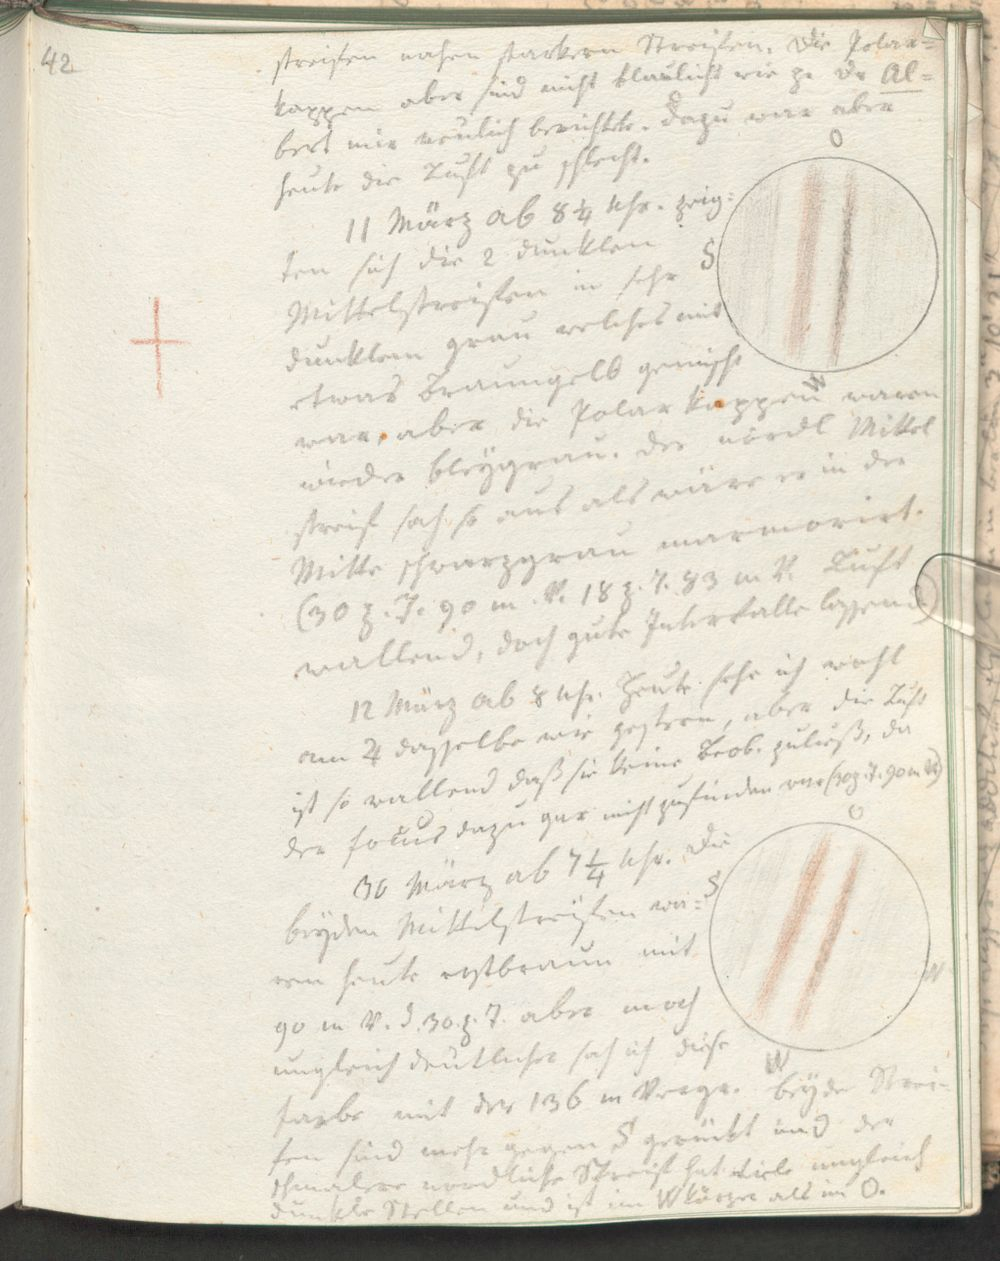 42
streifen nahen starkern Streifen. Die Polar=
kappen aber sind nicht blaulicht wie Dr Al=
bert mir neulich berichtete. Dazu war aber
heute die Luft zu schlecht.
O
11 März ab 8¼ Uhr. zeig=
ten sich die 2 dunklen
S
Mittelstreifen in sehr
dunklem grau welches mit
etwas Braungelb gemischt
W
war, aber die Polarkappen waren
wieder bleÿgrau. der nördl Mittel
streif sah so aus als wäre er in der
Mitte schwarzgrau marmorirt.
(30 z. F. 90 m. V. 18 z. F. 83 m V. Luft
wallend, doch gute Intervalle lassend)
12 März ab 8 Uhr. Heute sehe ich wohl
am ♃ dasselbe wie gestern, aber die Luft
ist so wallend daß sie keine Beob. zuließ, da
der focus dazu gar nicht zu finden war (30 z. F. 90 m V.)
O
30 März ab 7¼ Uhr. Die
S
beÿden Mittelstreifen wa=
ren heute rostbraun mit
N
90 m V. d. 30. z. F. aber noch
ungleich deutlicher sah ich diese
W
farbe mit der 136 m Vergr. beÿde Strei=
fen sind mehr gegen S gerückt und der
schmalere nordliche Streif hat viele ungleich
dunkle Stellen und ist im W kürzer als im O.